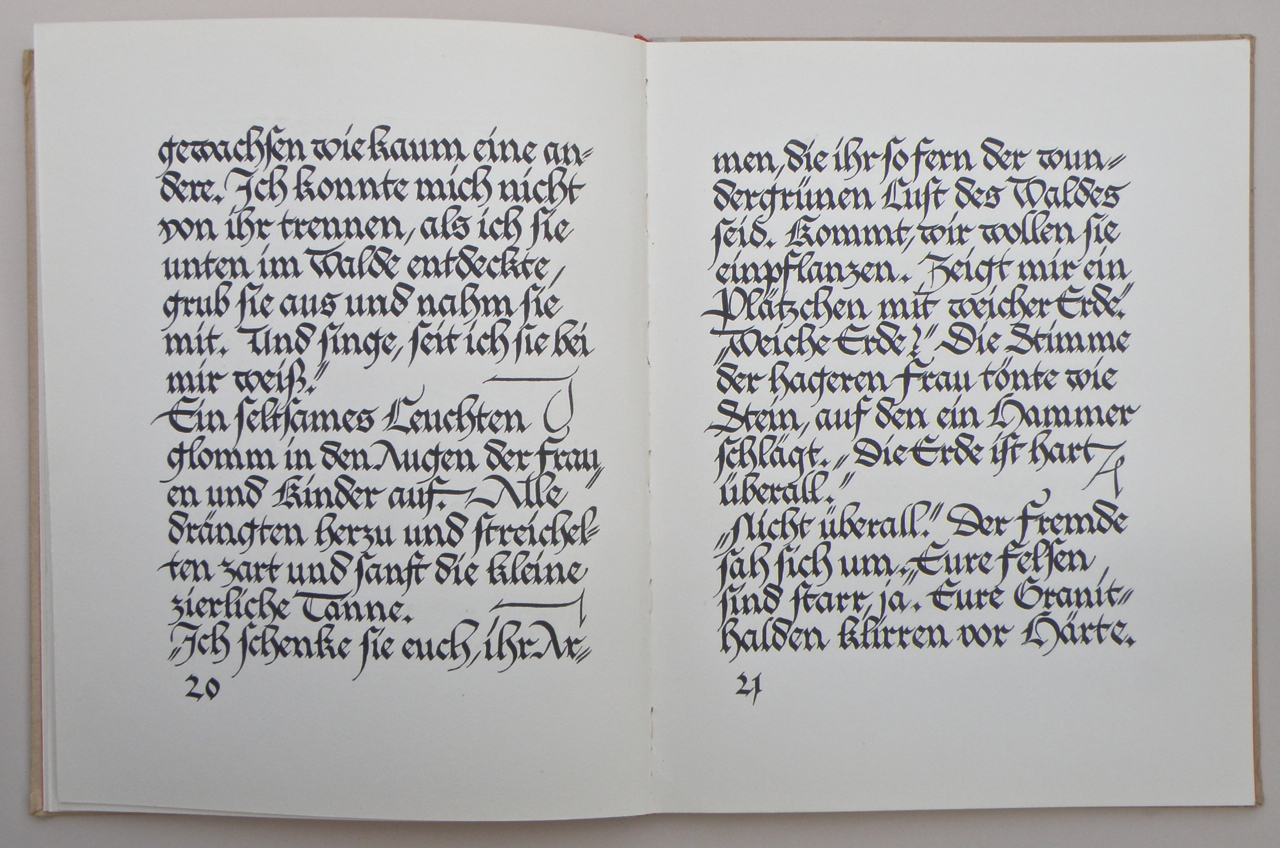 gewachsen wie kaum eine an=
dere. Ich konnte mich nicht
von ihr trennen, als ich sie
unten im Walde entdeckte,
grub sie aus und nahm sie
mit. Und singe, seit ich sie bei
mir weiß.“
Ein seltsames Leuchten
glomm in den Augen der Frau=
en und Kinder auf. – Alle
drängten herzu und streichel=
ten zart und sanft die kleine
zierliche Tanne.
„Ich schenke sie euch, ihr Ar=
20
men, die ihr so fern der wun=
dergrünen Lust des Waldes
seid. Kommt, wir wollen sie
einpflanzen. Zeigt mir ein
Plätzchen mit weicher Erde.“
„Weiche Erde?“ Die Stimme
der hageren Frau tönte wie
Stein, auf den ein Hammer
schlägt. „Die Erde ist hart
überall.“
„Nicht überall.“ Der Fremde
sah sich um. „Eure Felsen
sind starr, ja. Eure Granit=
halden klirren vor Härte.
21